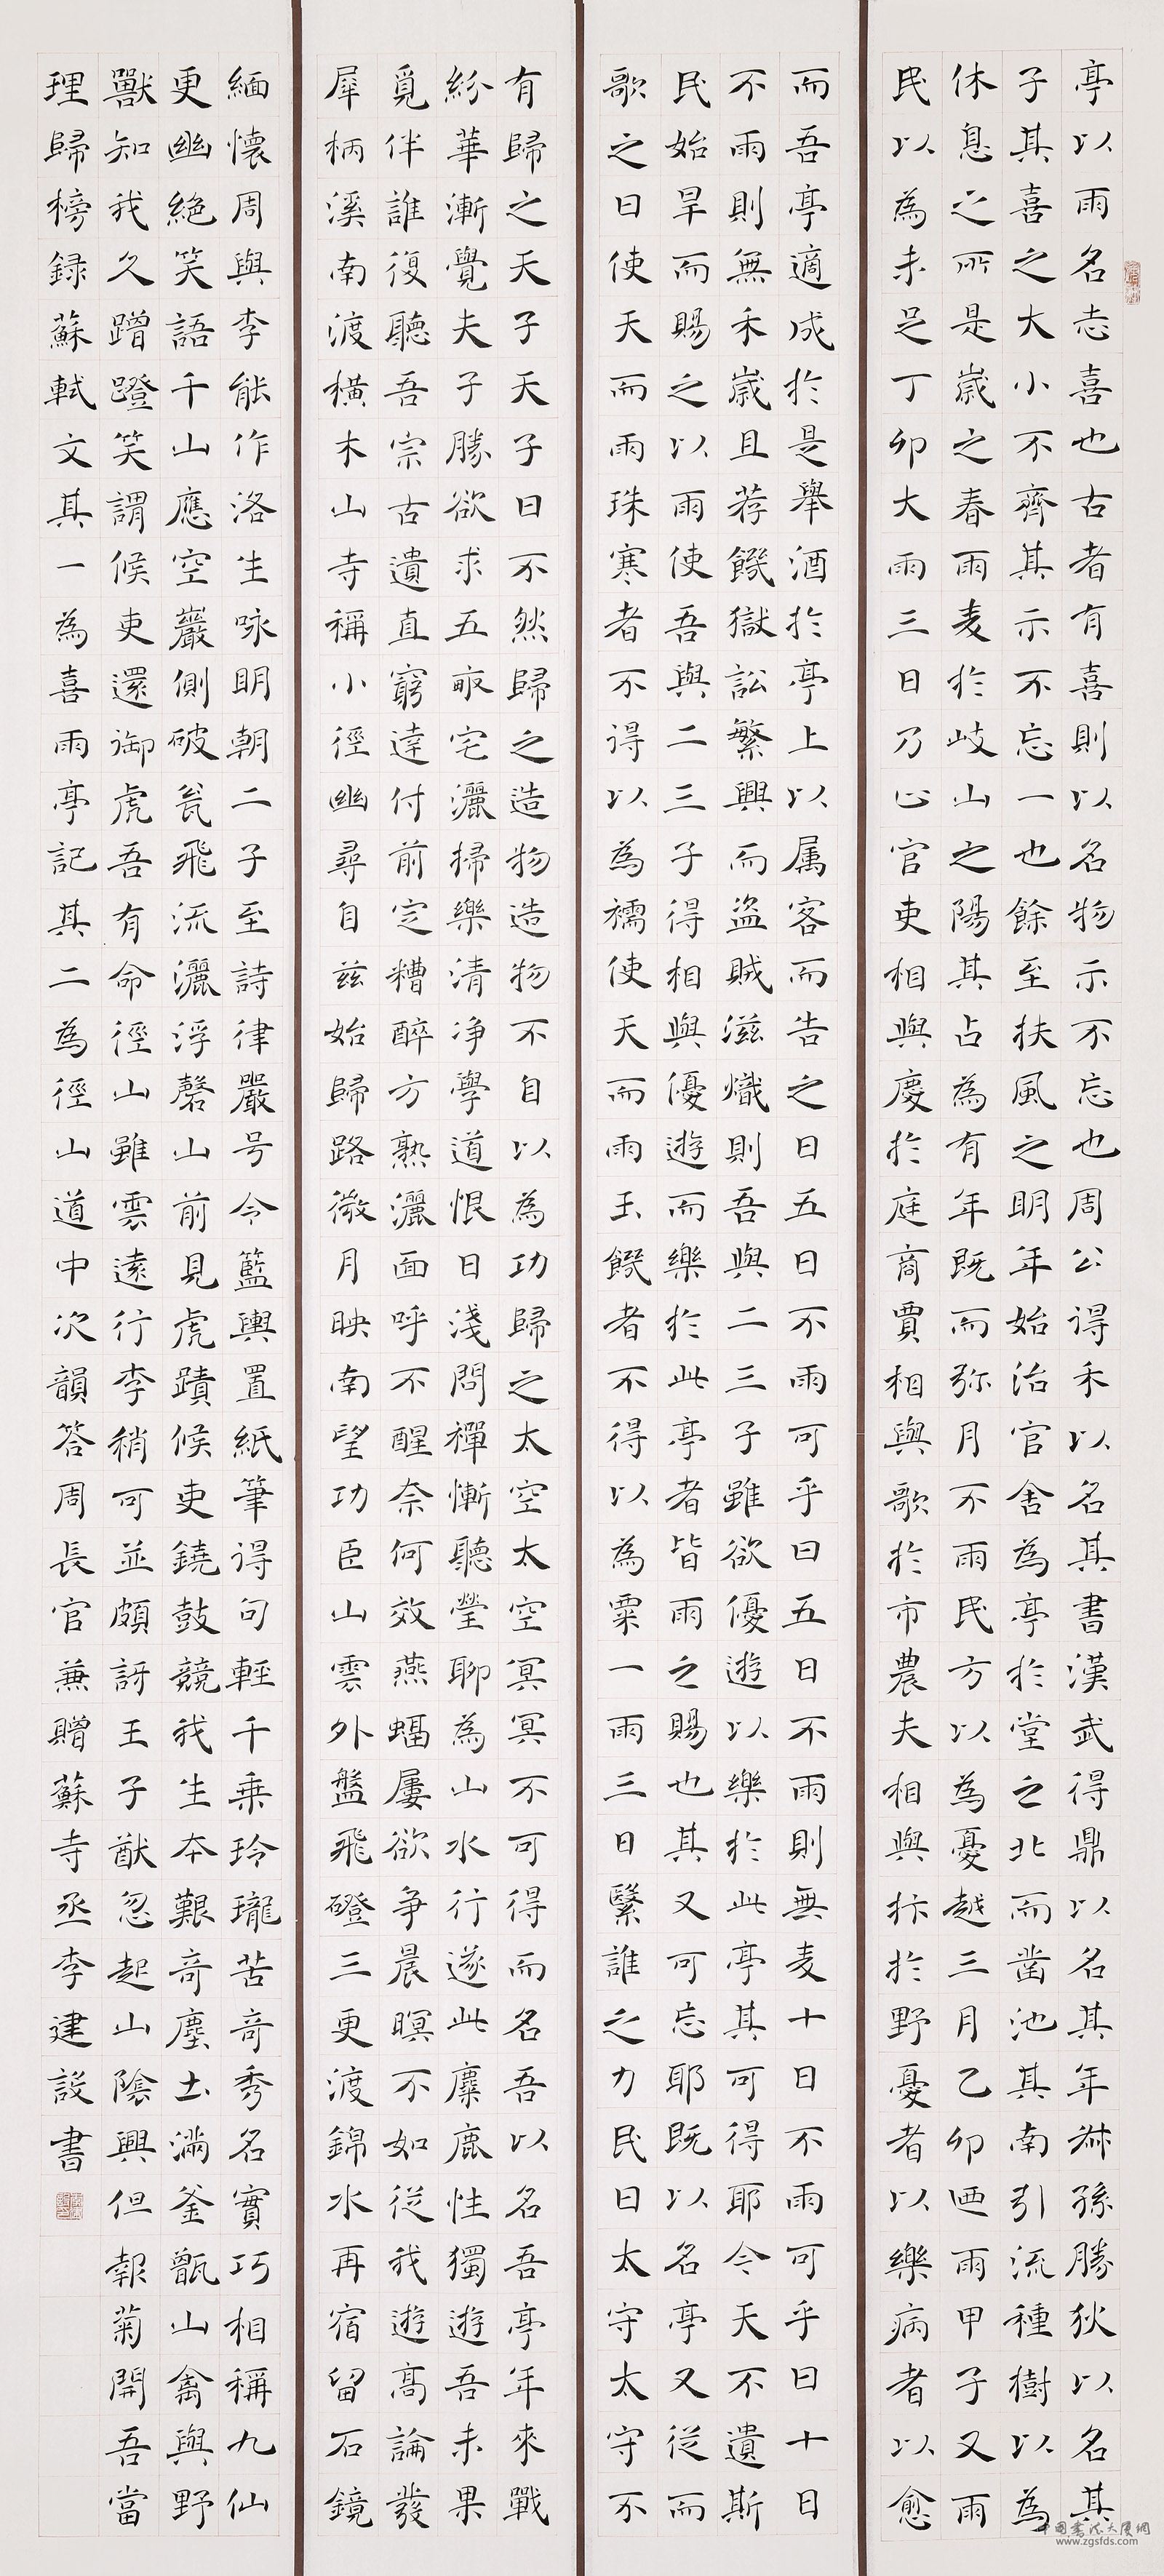 亭以雨名志喜也古者有喜則以名物示不忘也周公得禾以名其書漢武得鼎以名其年叔孫勝狄以名其
子其喜之大小不齊其示不忘一也餘至扶風之明年始治官舍為亭於堂之北而凿池其南引流種樹以為
休息之所是歲之春雨麦於岐山之陽其占為有年既而弥月不雨民方以為憂越三月乙卯迺雨甲子又雨
民以為未足丁卯大雨三日乃止官吏相與慶於庭商賈相與歌於市農夫相與抃於野憂者以樂病者以愈
而吾亭適成於是舉酒於亭上以属客而告之曰五日不雨可乎曰五日不雨則無麦十日不雨可乎曰十日
不雨則無禾歲且荐饑獄訟繁興而盜賊滋熾則吾與二三子雖欲優遊以樂於此亭其可得耶今天不遺斯
民始旱而賜之以雨使吾與二三子得相與優遊而樂於此亭者皆雨之賜也其又可忘耶既以名亭又從而
歌之曰使天而雨珠寒者不得以為襦使天而雨玉饑者不得以為粟一雨三日繄誰之力民曰太守太守不
有歸之天子天子曰不然歸之造物造物不自以為功歸之太空太空冥冥不可得而名吾以名吾亭年來戰
紛華漸覺夫子勝欲求五畝宅灑掃樂清净學道恨日淺問禪慚聽瑩聊為山水行遂此麋鹿性獨遊吾未果
覓伴誰復聽吾宗古遺直窮達付前定糟醉方熟灑面呼不醒奈何效燕蝠屢欲爭晨暝不如從我遊高論發
犀柄溪南渡橫木山寺稱小徑幽尋自兹始歸路微月映南望功臣山雲外盤飛磴三更渡錦水再宿留石鏡
緬懷周與李能作洛生咏明朝二子至詩律嚴号令籃輿置紙筆得句輕千乗玲瓏苦奇秀名實巧相稱九仙
更幽絕笑語千山應空巖側破瓮飛流灑浮磬山前見虎蹟候吏鐃鼓競我生本艱奇塵土滿釜甑山禽與野
獸知我久蹭蹬笑謂候吏還御虎吾有命徑山雖雲遠行李稍可並頗訝王子猷忽起山陰興但報菊開吾當
理歸榜録蘇軾文其一為喜雨亭記其二為徑山道中次韻答周長官兼贈蘇寺丞李建設書
中國書法大廈網
www.zgsfds.com